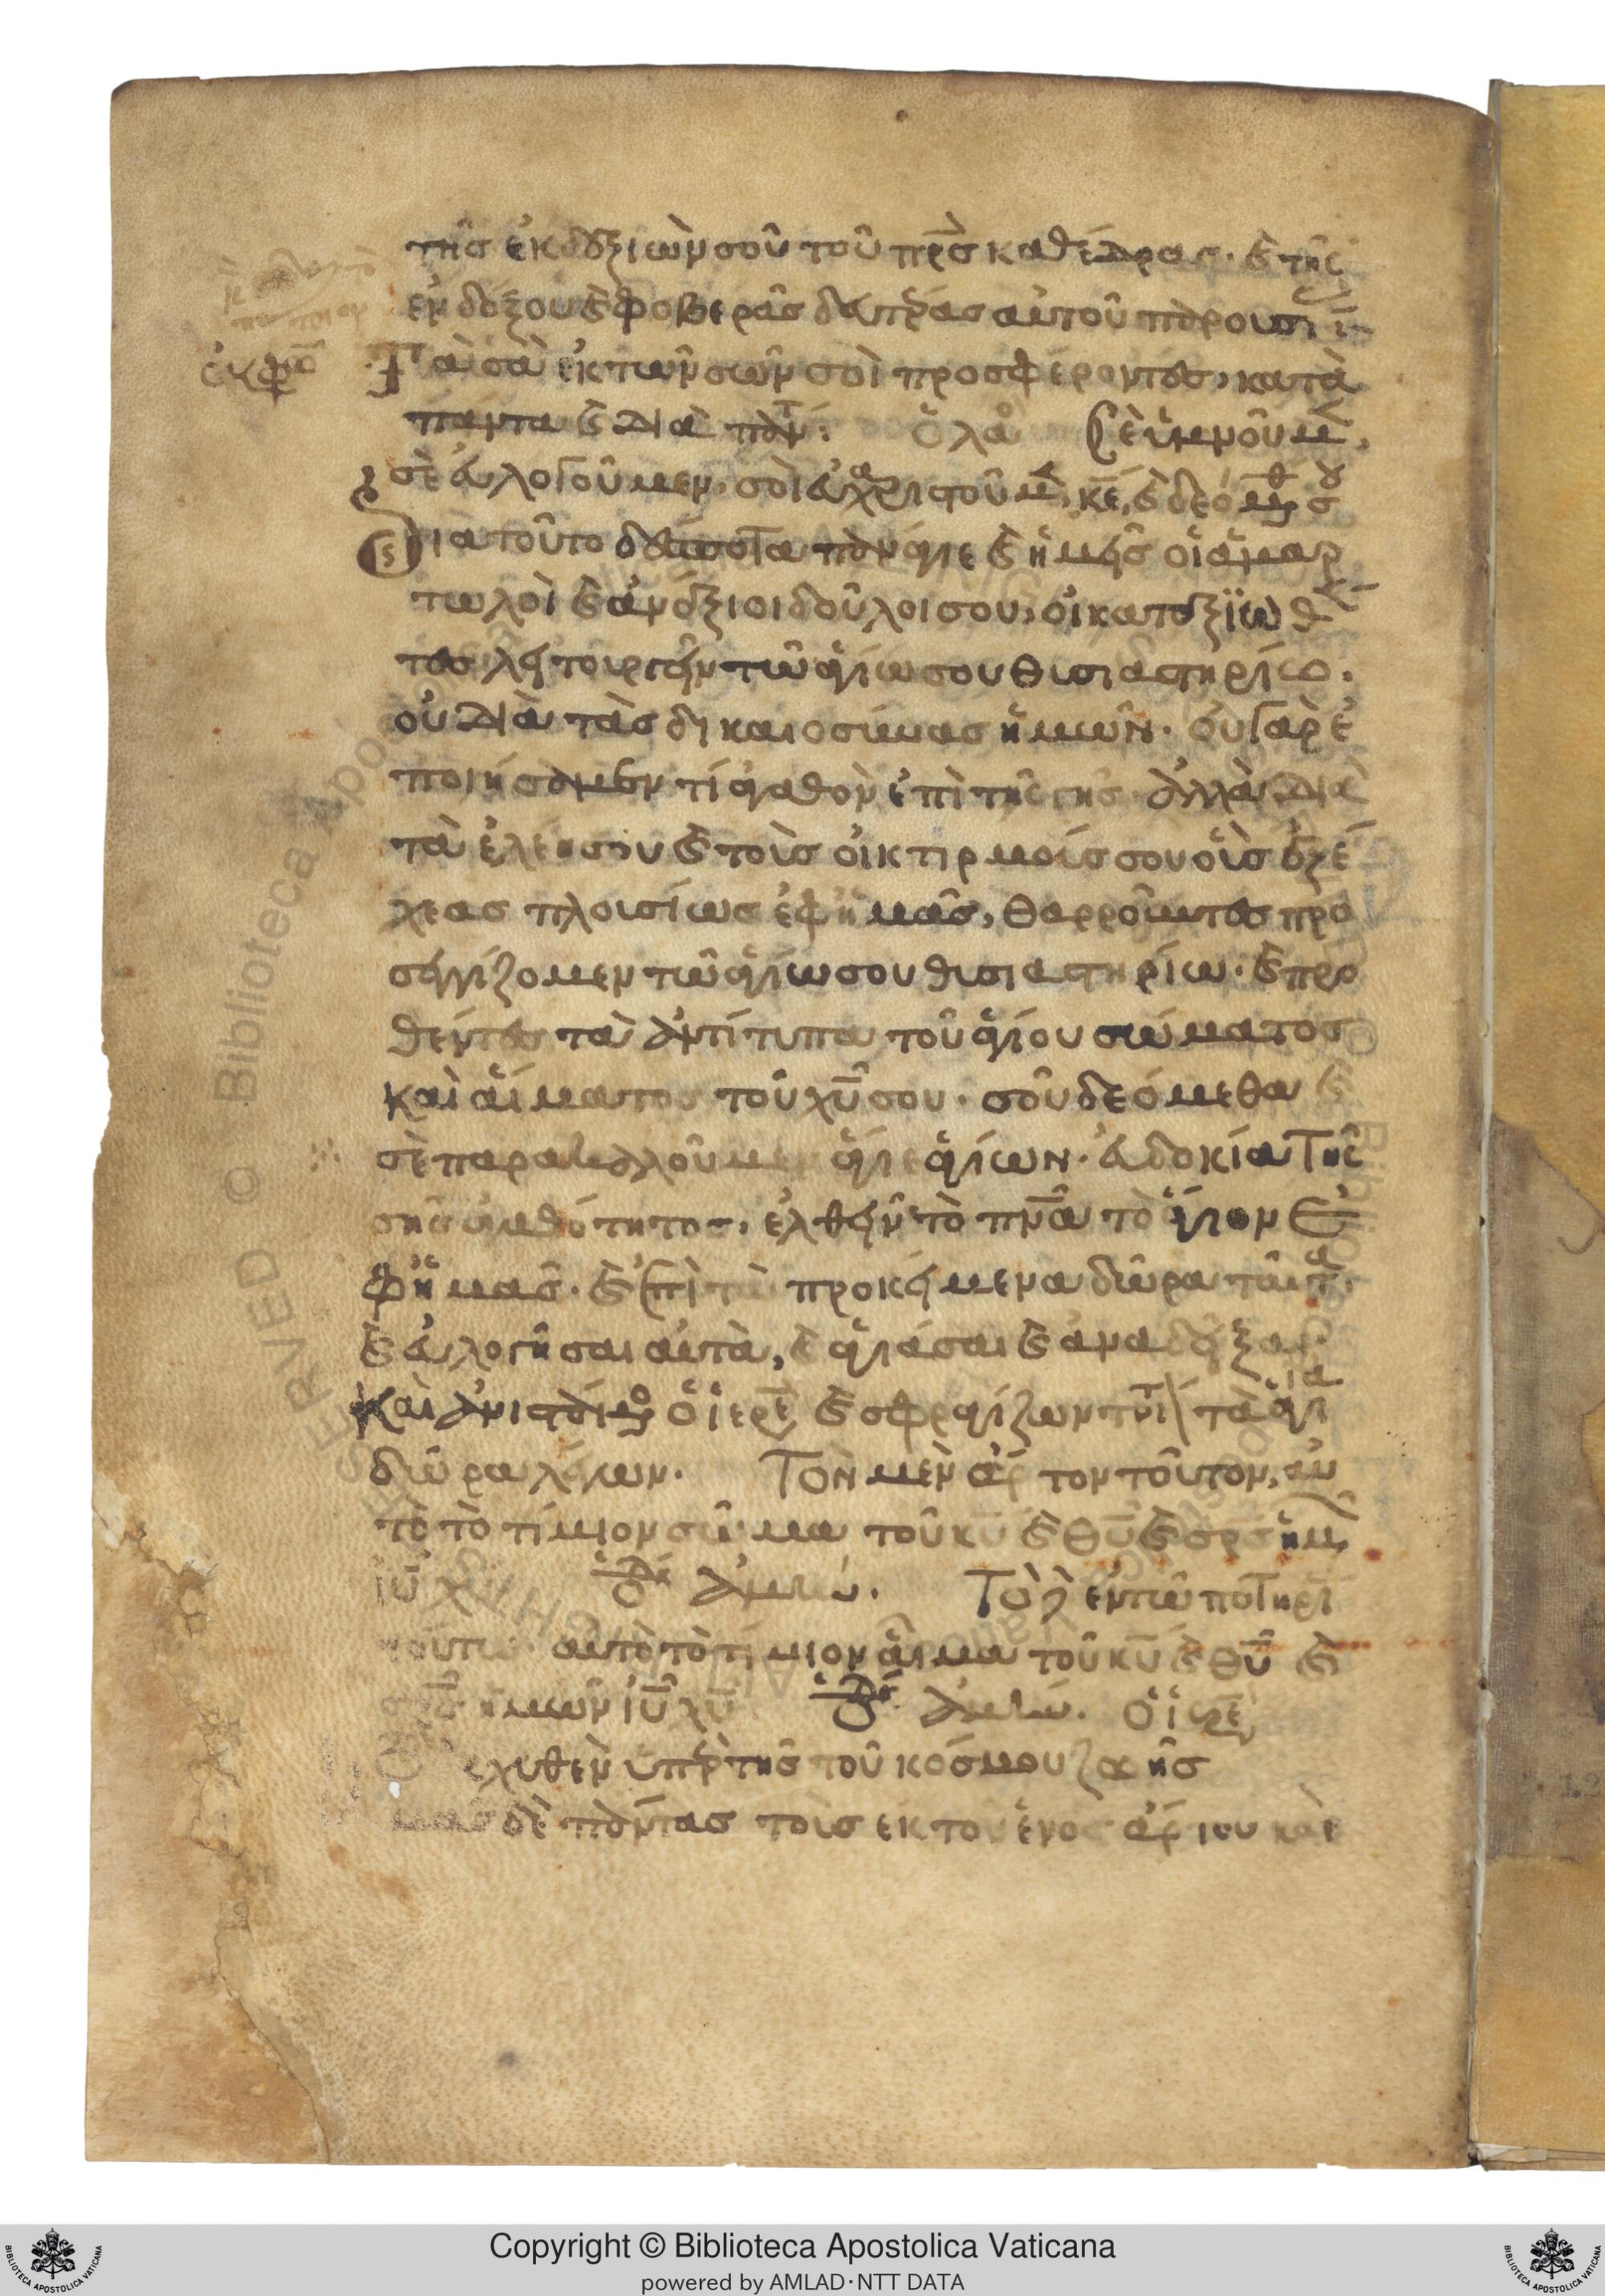 τῆς ἐκ δεξιῶν σοῦ τοῦ πρς καθέδρας· καὶ τῆς
ἐνδόξου καὶ φοβερᾶς δευτέρας αὐτοῦ παρουσί
ἐκφω Τὰ σὰ ἐκ τῶν σῶν σοὶ προσφέροντες, κατὰ
πάντα καὶ διὰ πάντ: ὁ λαο Σὲ ὑμνοῦμεν,
σὲ εὐλογοῦμεν, σοὶ εὐχαριστοῦμεν, κε, καὶ δεόμεθ σου
Διατοῦτο δέσποτα πανάγιε καὶ ἡμεῖς οἱ ἁμαρ
τωλοὶ καὶ ἀνάξιοι δοῦλοι σου, οἱ καταξιωθέν
τες λητουργεῖν τῶ ἁγίω σου θυσιαστηρίω.
οὐ διὰ τὰς δικαιοσύνας ἡμῶν. οὐ γὰρ ἐ
ποιήσαμέν τί ἀγαθὸν ἐπὶ τῆς γῆς ἀλλὰ διὰ
τὰ ἐλέη σου καὶ τοὺς οἰκτιρμούς σου οὓς ἐξέ
χεας πλουσίως ἐφ ἡμᾶς, θαρροῦντες προ
σεγγίζομεν τῶ ἁγίω σου θυσιαστηρίω. καὶ προ
θέντες τὰ ἀντίτυπα τοῦ ἁγίου σώματος
καὶ αἵματος τοῦ χυ σου. σοῦ δεόμεθα καὶ
σὲ παρακαλοῦμεν ἅγιε ἁγίων. εὐδοκία τῆς
σῆς ἀγαθότητος, ἐλθεῖν τὸ πνα τὸ ἅγιον ἐ
φ ἡμᾶς. καὶ ἐπὶ τὰ προκείμενα δῶρα ταῦτα.
καὶ εὐλογῆσαι αὐτὰ, καὶ ἁγιάσαι καὶ ἀναδεῖξαι.
Καὶ ἀνιστάμενος ὁ ἱερε καὶ σφραγίζων τρι τὰ ἅγια
δῶρα λέγων. Τὸν μὲν ἄρτον τοῦτον, αὐ
τὸ τὸ τίμιον σῶμα τοῦ κυ καὶ θυ καὶ σρς ἡμῶν
ιυ χυ ὁ δια ἀμήν. Τὸ δὲ ἐν τῶ ποτηρί
τούτω αὐτὸ τὸ τίμιον αἷμα τοῦ κυ καὶ θυ καὶ
σρς ἡμῶν ιυ χυ ὁ δια ἀμήν. ὁ ἱερε
Τὸ ἐκχυθὲν ὑπὲρ τῆς τοῦ κόσμου ζωῆς
ἡμᾶς δὲ πάντας τοὺς ἐκ τοῦ ἑνὸς ἄρτου καὶ
Copyright © Biblioteca Apostolica Vaticana
powered by AMLAD·NTT DATA